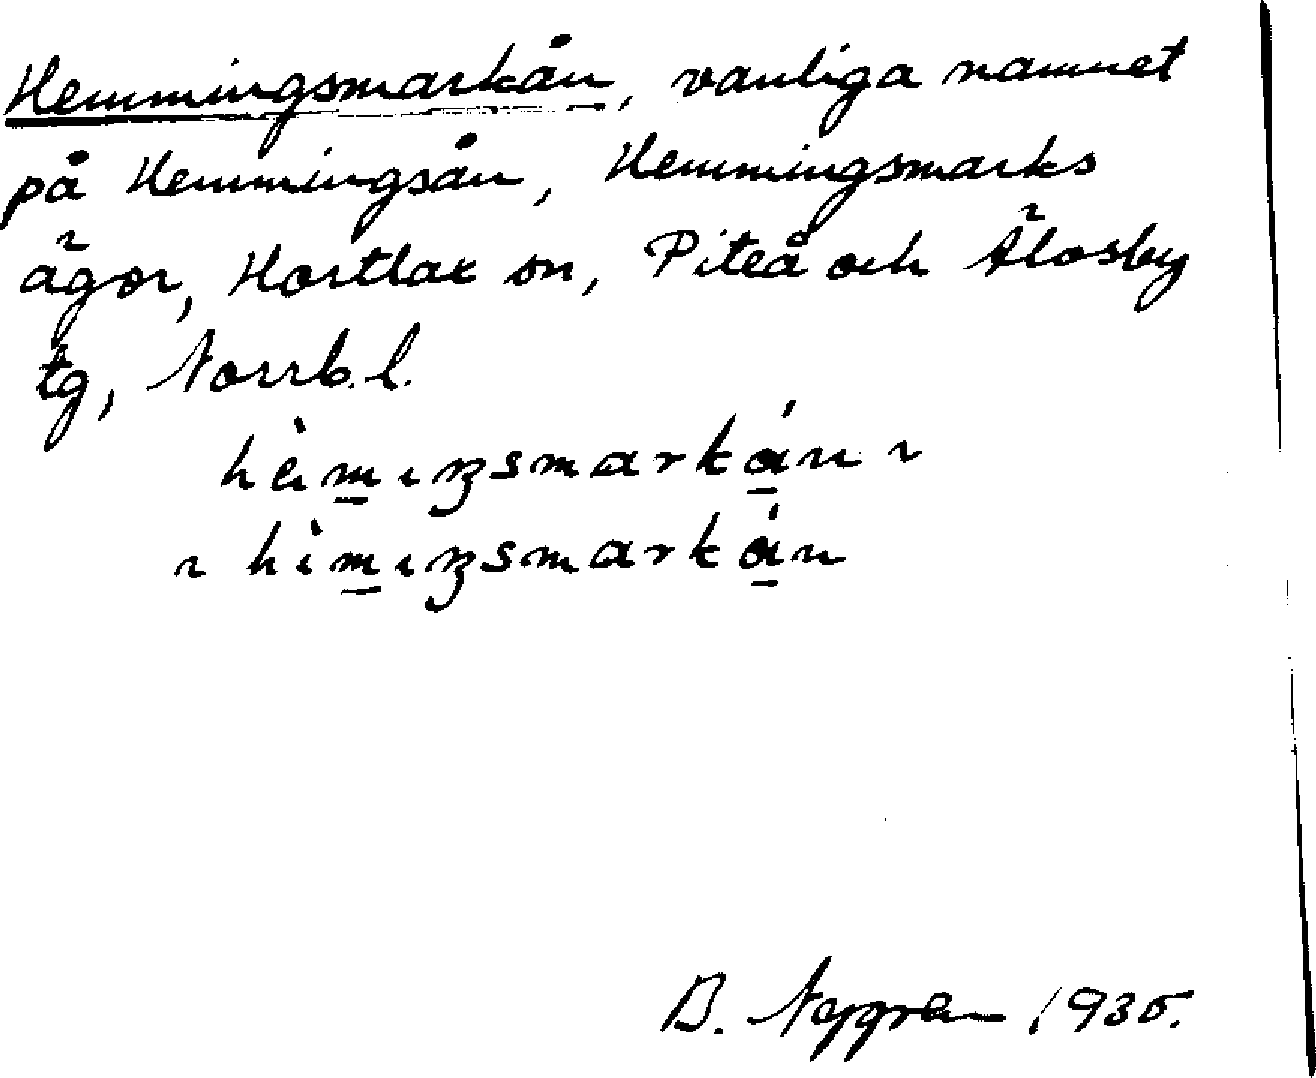 Hemmingsmarkån, vanliga namnet
på Hemmingsån, Hemmingsmarks
ägor, Hortlax sn, Piteå och Älvsby
tg, Norrb. l.
hèm̲ıŋsmarkά̲n ~
~ hìm̲ıŋsmarkά̲n
B. Nygren 1935.